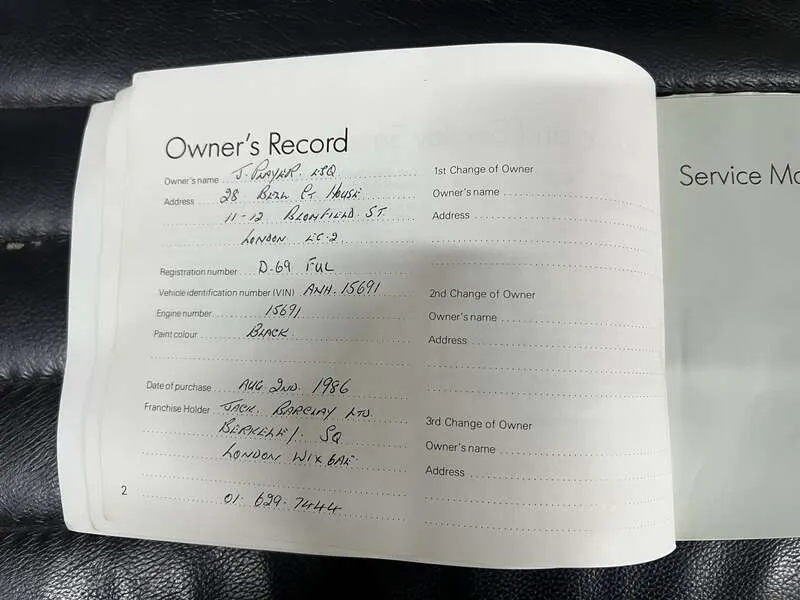 Owner's Record
Owner's name J. PLAYER. ESQ
Address 28 BELL CT HOUSE
11-12 BLOMFIELD ST
LONDON EC-2.
Registration number D-69 FUL
Vehicle identification number (VIN) ANH.15691
Engine number 15691
Paint colour BLACK
Date of purchase AUG 2ND. 1986
Franchise Holder JACK. BARCLAY LTD.
BERKELEY. SQ
LONDON W1X 6AE.
01. 629. 7444
2
1st Change of Owner
Owner's name
Address
2nd Change of Owner
Owner's name
Address
3rd Change of Owner
Owner's name
Address
Service